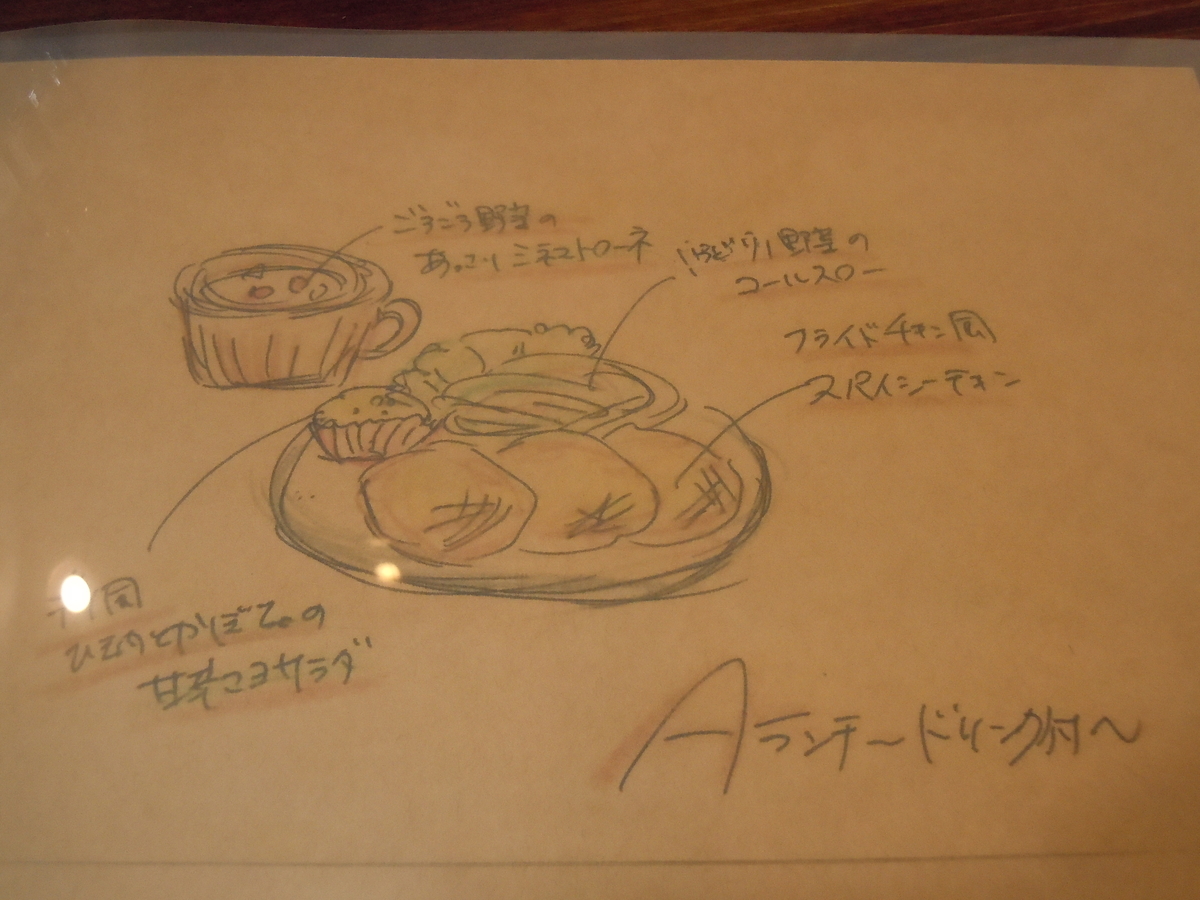 ごろごろ野菜の
あっさりミネストローネ
いろどり野菜の
コールスロー
フライドチキン風
スパイシーチキン
風
ひき肉とかぼちゃの
甘辛マヨサラダ
Aランチ〜ドリンク付〜